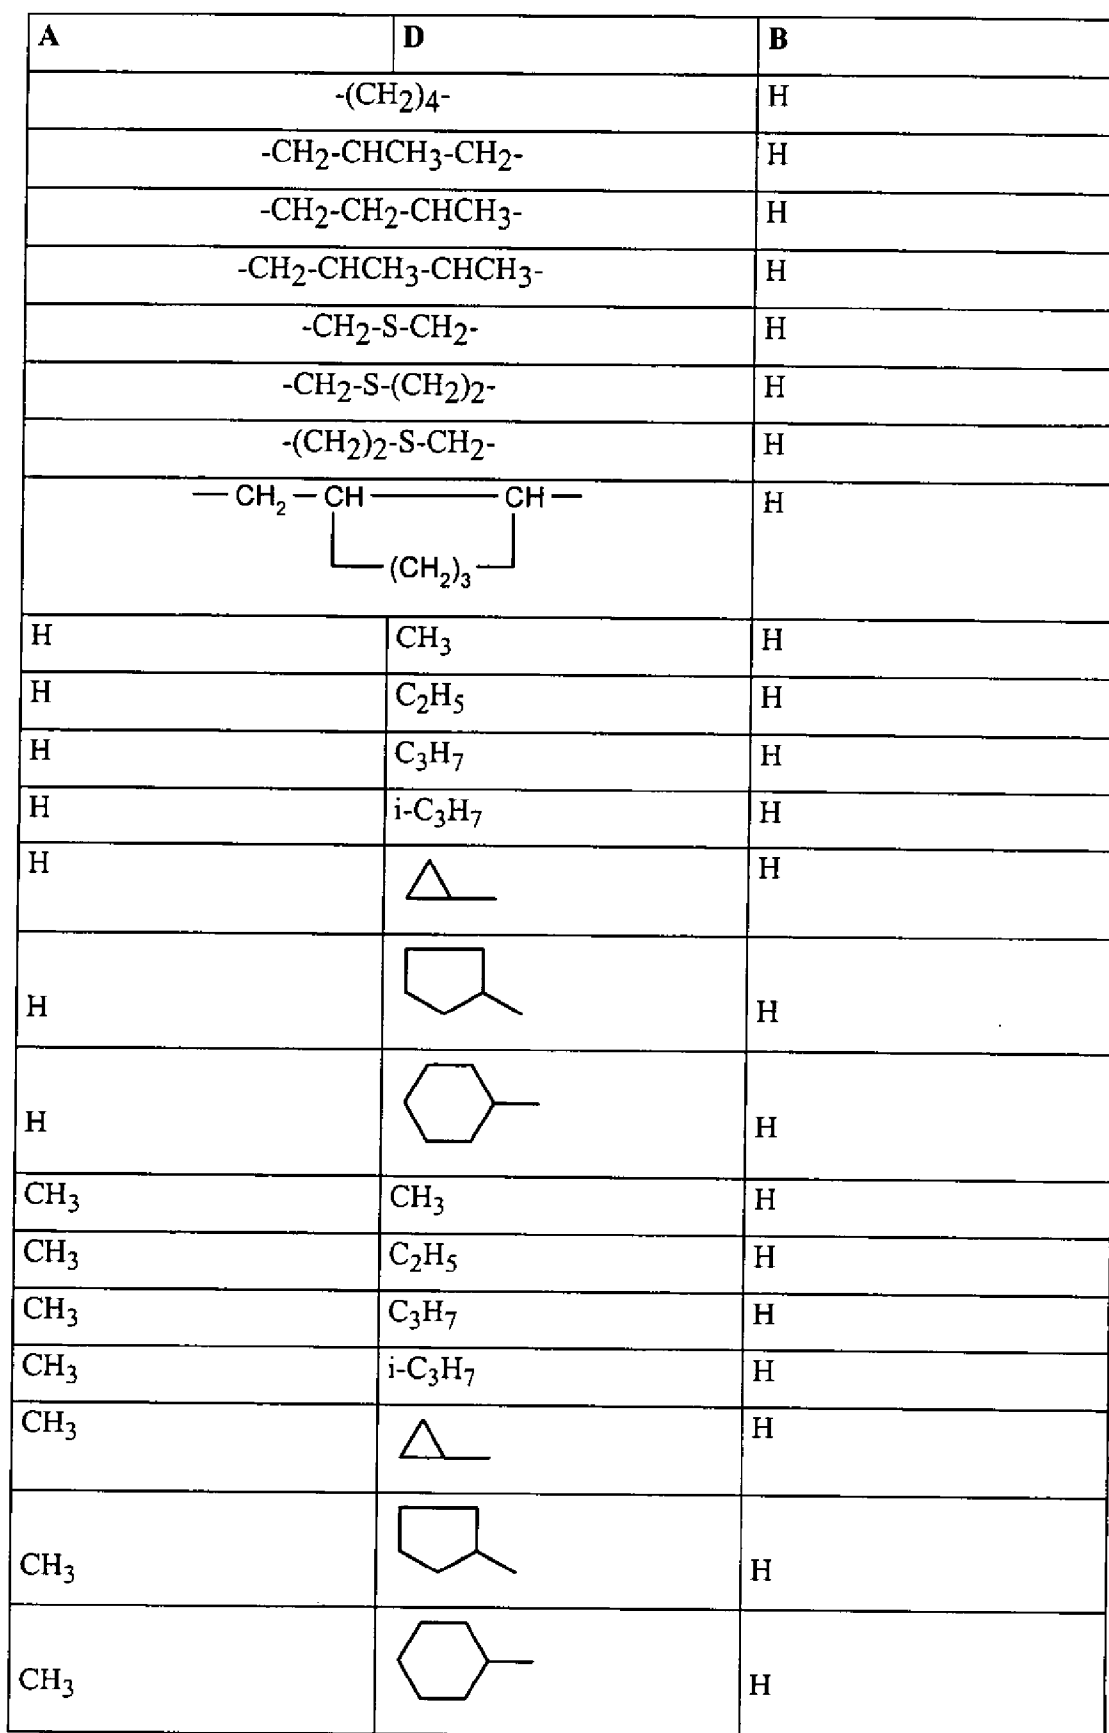 A D B
-(CH2)4- H
-CH2-CHCH3-CH2- H
-CH2-CH2-CHCH3- H
-CH2-CHCH3-CHCH3- H
-CH2-S-CH2- H
-CH2-S-(CH2)2- H
-(CH2)2-S-CH2- H
—CH2—CH——CH— H
(CH2)3
H CH3 H
H C2H5 H
H C3H7 H
H i-C3H7 H
H H
H H
H H
CH3 CH3 H
CH3 C2H5 H
CH3 C3H7 H
CH3 i-C3H7 H
CH3 H
CH3 H
CH3 H